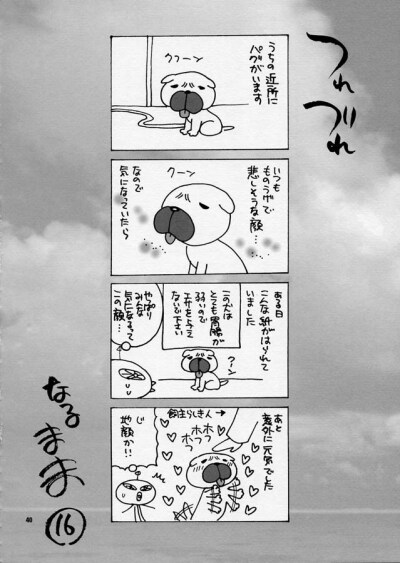 つれ
づれ
なる
まま
⑯
うちの近所に
パグがいます
クフーン
いつも
ものうげで
悲しそうな顔…
なので
気になっていたら
クーン
ある日
こんな紙がはられて
いました
この犬は
とても胃腸が
弱いので
エサを与え
ないで下さい
やっぱり
みんな
気になるって
この顔…
クーン
あと
意外に元気でした
飼主らしき人→
ホホ
ホフ
ホフ
じ
地顔か!!
40